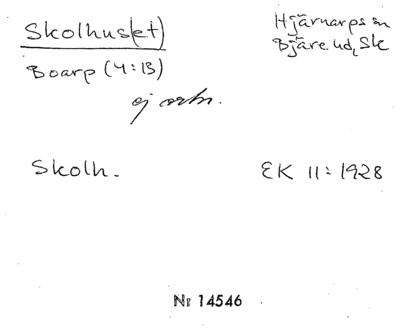 Skolhus(et)
Hjärnarps sn
Boarp (4:13)
Bjäre hd, Sk
ej ortn.
Skolh.
EK 11: 1928
Nr 14546